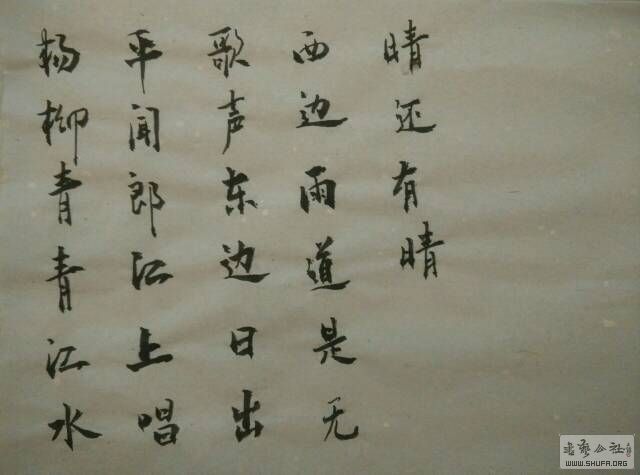 杨柳青青江水
平闻郎江上唱
歌声东边日出
西边雨道是无
晴还有晴
书艺公社
WWW.SHUFA.ORG